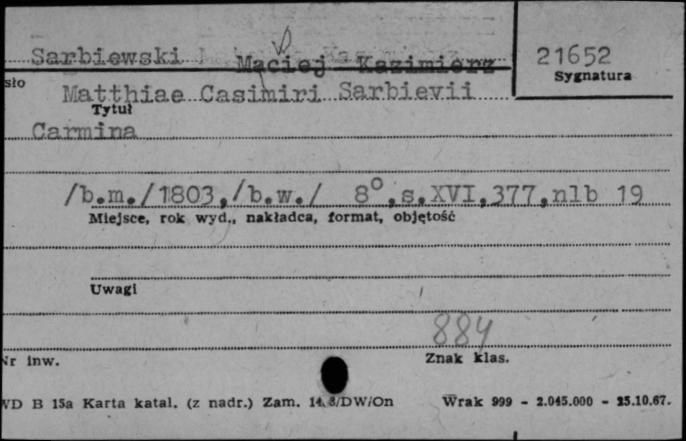 Sarbiewski Maciej Kazimierz
21652
Sygnatura
sło
Matthiae Casimiri Sarbievii
Tytuł
Carmina
/b.m./1803,/b.w./ 8°,s.XVI,377,nlb 19
Miejsce, rok wyd., nakładca, format, objętość
Uwagi
884
Nr inw.
Znak klas.
WD B 15a Karta katal. (z nadr.) Zam. /DW/On Wrak 999 - 2.045.000 - 25.10.67.